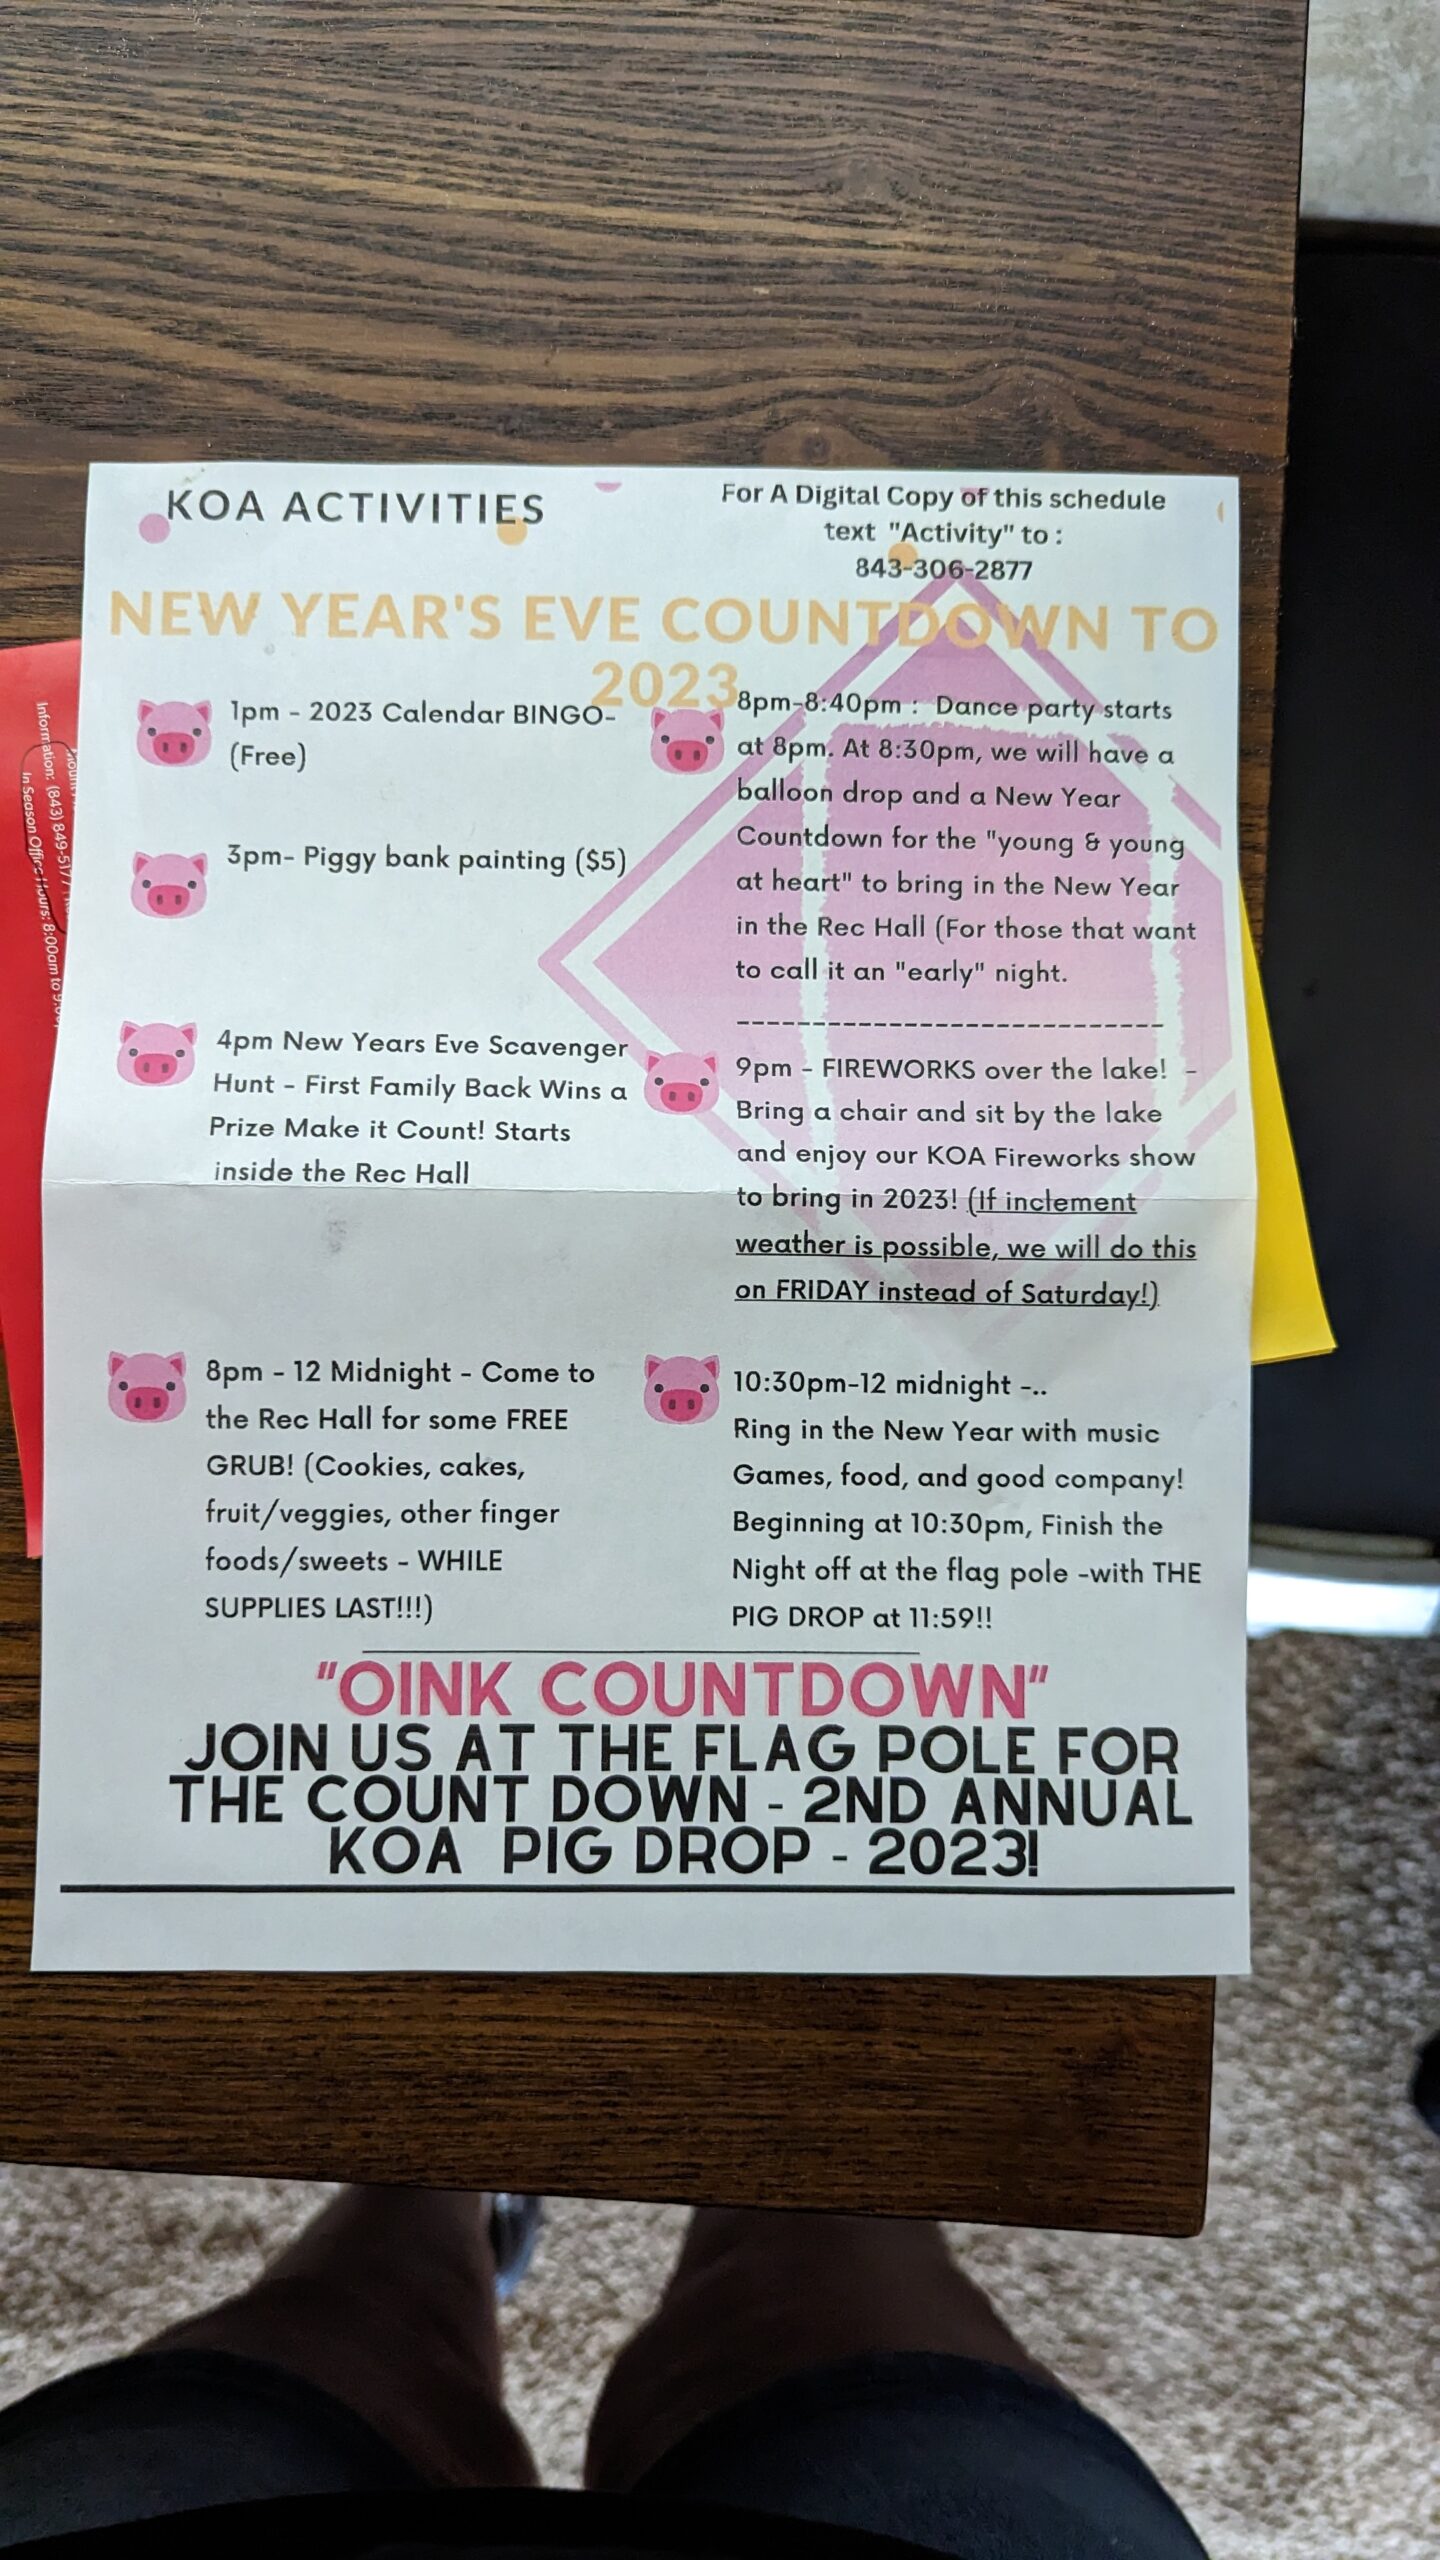 KOA ACTIVITIES
For A Digital Copy of this schedule
text "Activity" to :
843-306-2877
NEW YEAR'S EVE COUNTDOWN TO
2023
1pm - 2023 Calendar BINGO-
(Free)
3pm- Piggy bank painting ($5)
4pm New Years Eve Scavenger
Hunt - First Family Back Wins a
Prize Make it Count! Starts
inside the Rec Hall
8pm - 12 Midnight - Come to
the Rec Hall for some FREE
GRUB! (Cookies, cakes,
fruit/veggies, other finger
foods/sweets - WHILE
SUPPLIES LAST!!!)
8pm-8:40pm : Dance party starts
at 8pm. At 8:30pm, we will have a
balloon drop and a New Year
Countdown for the "young & young
at heart" to bring in the New Year
in the Rec Hall (For those that want
to call it an "early" night.
----------------------------
9pm - FIREWORKS over the lake! -
Bring a chair and sit by the lake
and enjoy our KOA Fireworks show
to bring in 2023! (If inclement
weather is possible, we will do this
on FRIDAY instead of Saturday!)
10:30pm-12 midnight -..
Ring in the New Year with music
Games, food, and good company!
Beginning at 10:30pm, Finish the
Night off at the flag pole -with THE
PIG DROP at 11:59!!
"OINK COUNTDOWN"
JOIN US AT THE FLAG POLE FOR
THE COUNT DOWN - 2ND ANNUAL
KOA PIG DROP - 2023!
Information: (843) 849-5177
In Season Office Hours: 8:00am to